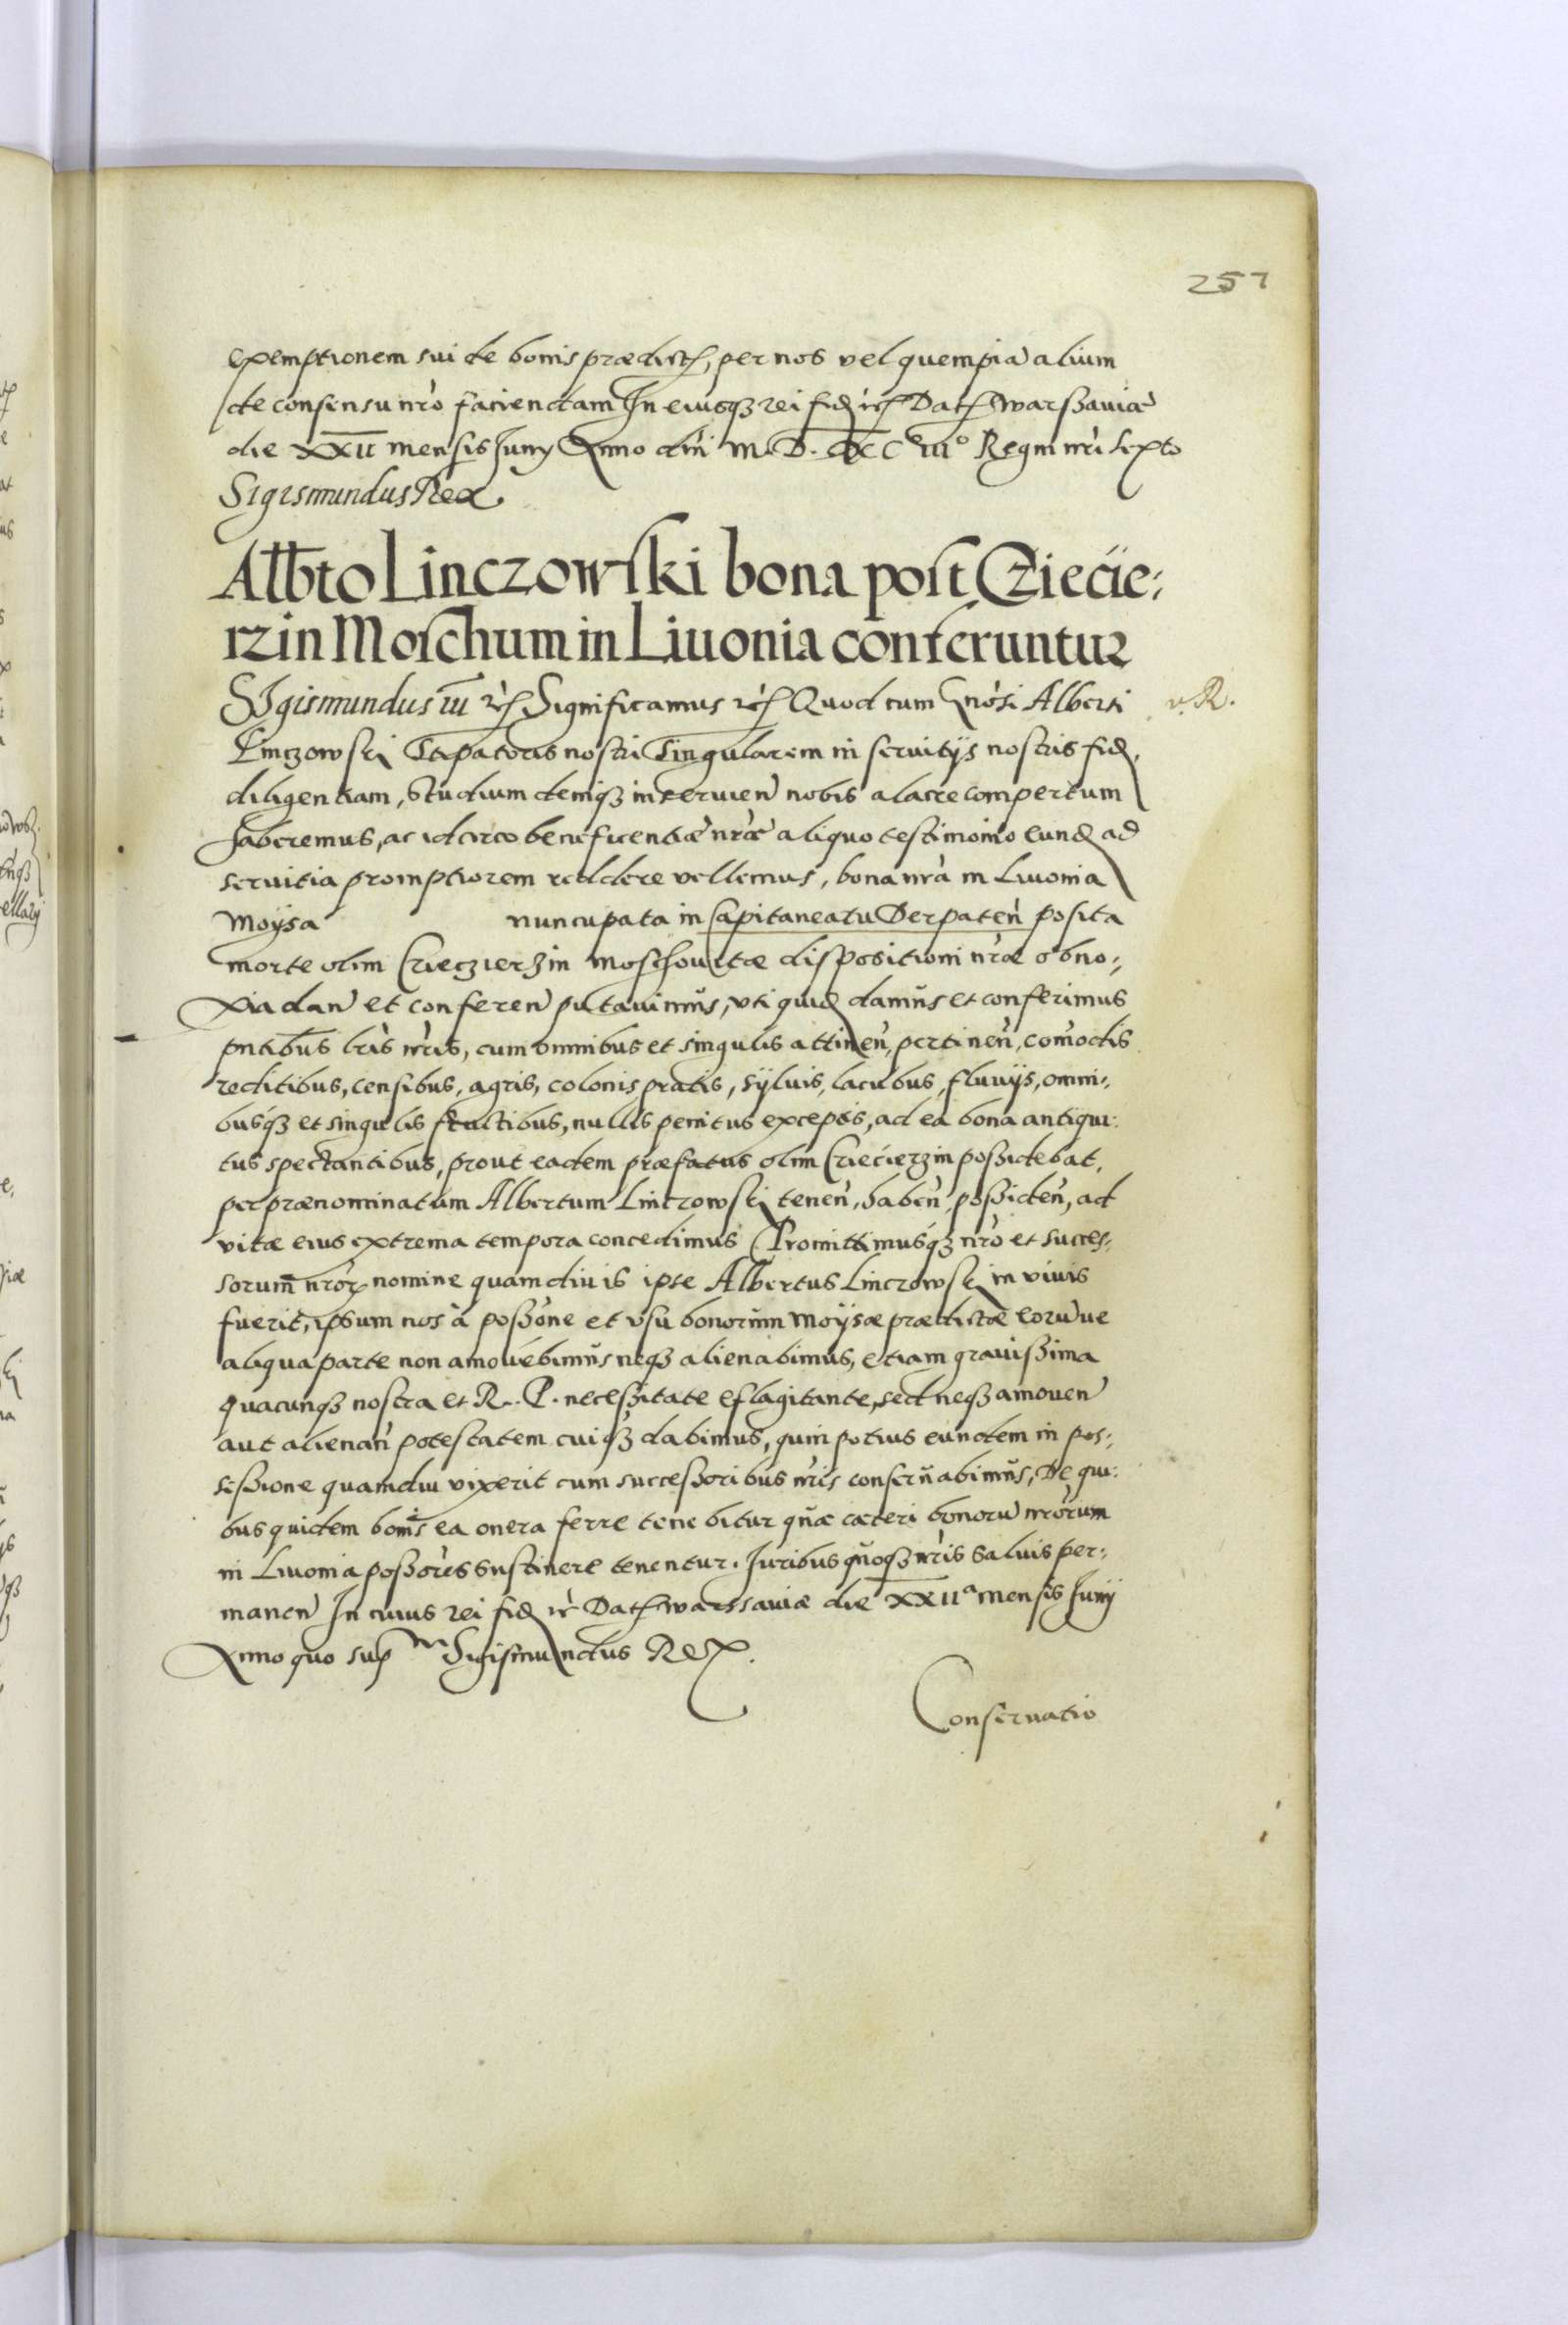 257
exemptionem sui de bonis prædict, per nos vel quempiã alium
de consensu nrõ faciendam In eiusqз rei fid etc Dat Warssaviæ
die XXII mensis Iuny Anno dni M.D.XCIII° Regni nri sexto
Sigismundus Rex
Albto Linczowski bona post Cziecie:
rzin Moschum in Liuonia conferuntur
SIgismundus III etc Significamus etc Quod cum Gnosi Alberti
v. R.
Linczowski Stipatoris nostri singularem in servitÿs nostris fid,
diligentiam, studium deniqз inserviend nobis alacre compertum
haberemus, ac idcirco beneficentiæ nræ aliquo testimonio eund ad
servitia promptiorem reddere vellemus, bona nrã in Livonia
Moÿsa nuncupata in Capitaneatu Derpateñ posita
morte olim Czieczierzin Moschovitæ dispositioni nræ obno:,
xia dan et conferen putavimus, uti quid damus et conferimus
pntibus lris nris, cum omnibus et singulis attineñ, pertineñ, com̃odis
reditibus, censibus, agris, colonis pratis, sÿlvis, lacubus, fluvÿs, omni:,
busqз et singulis fructibus, nullis penitus exceptis, ad ea bona antiqui:
tus spectantibus, prout eadem præfatus olim Czieciezin possidebat,
per prænominatum Albertum Linczowski teneñ, habeñ, possideñ, ad
vitæ eius extrema tempora concedimus Promittimusqз nrõ et succes:,
sorum nror nomine quamdiu is ipse Albertus Linczowski in vivis
fuerit, ipsum nos à possõne et usu bonorum Moÿsæ prædictæ eorũve
aliqua parte non amovebimus neqз alienabimus, etiam gravissima
quacunqз nostra et R. P. necessitate eflagitante, sed neqз amoven
aut alienañ potestatem cuiqз dabimus, quin potius eundem in pos:,
sessione quamdiu vixerit cum successoribus nris conservabimus, De qui:
bus quidem bonis ea onera ferre tenebitur quæ cæteri bonorũ nrorum
in Livonia possores sustinere tenentur. Iuribus quoqз nris salvis per:
maneñ In cuius rei fid etc Dat Warssaviæ die XXIIa mensis Iunÿ
Anno quo sup Sigismundus Rex.
Conservatio